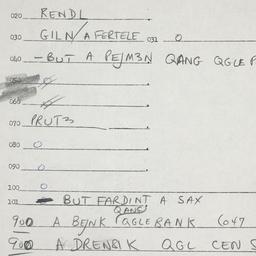 020 RENDL
030 GILN / A FERTELE 031 O
040 - BUT A PEJM3N QANG QGLE P
050
060
070 PRUT3
080 O
090 O
100 O
101 BUT FARDINT A SAX
QANG
900 A BEJNK QGLE BANK (047
900 A DRENBIK QGL CEN S